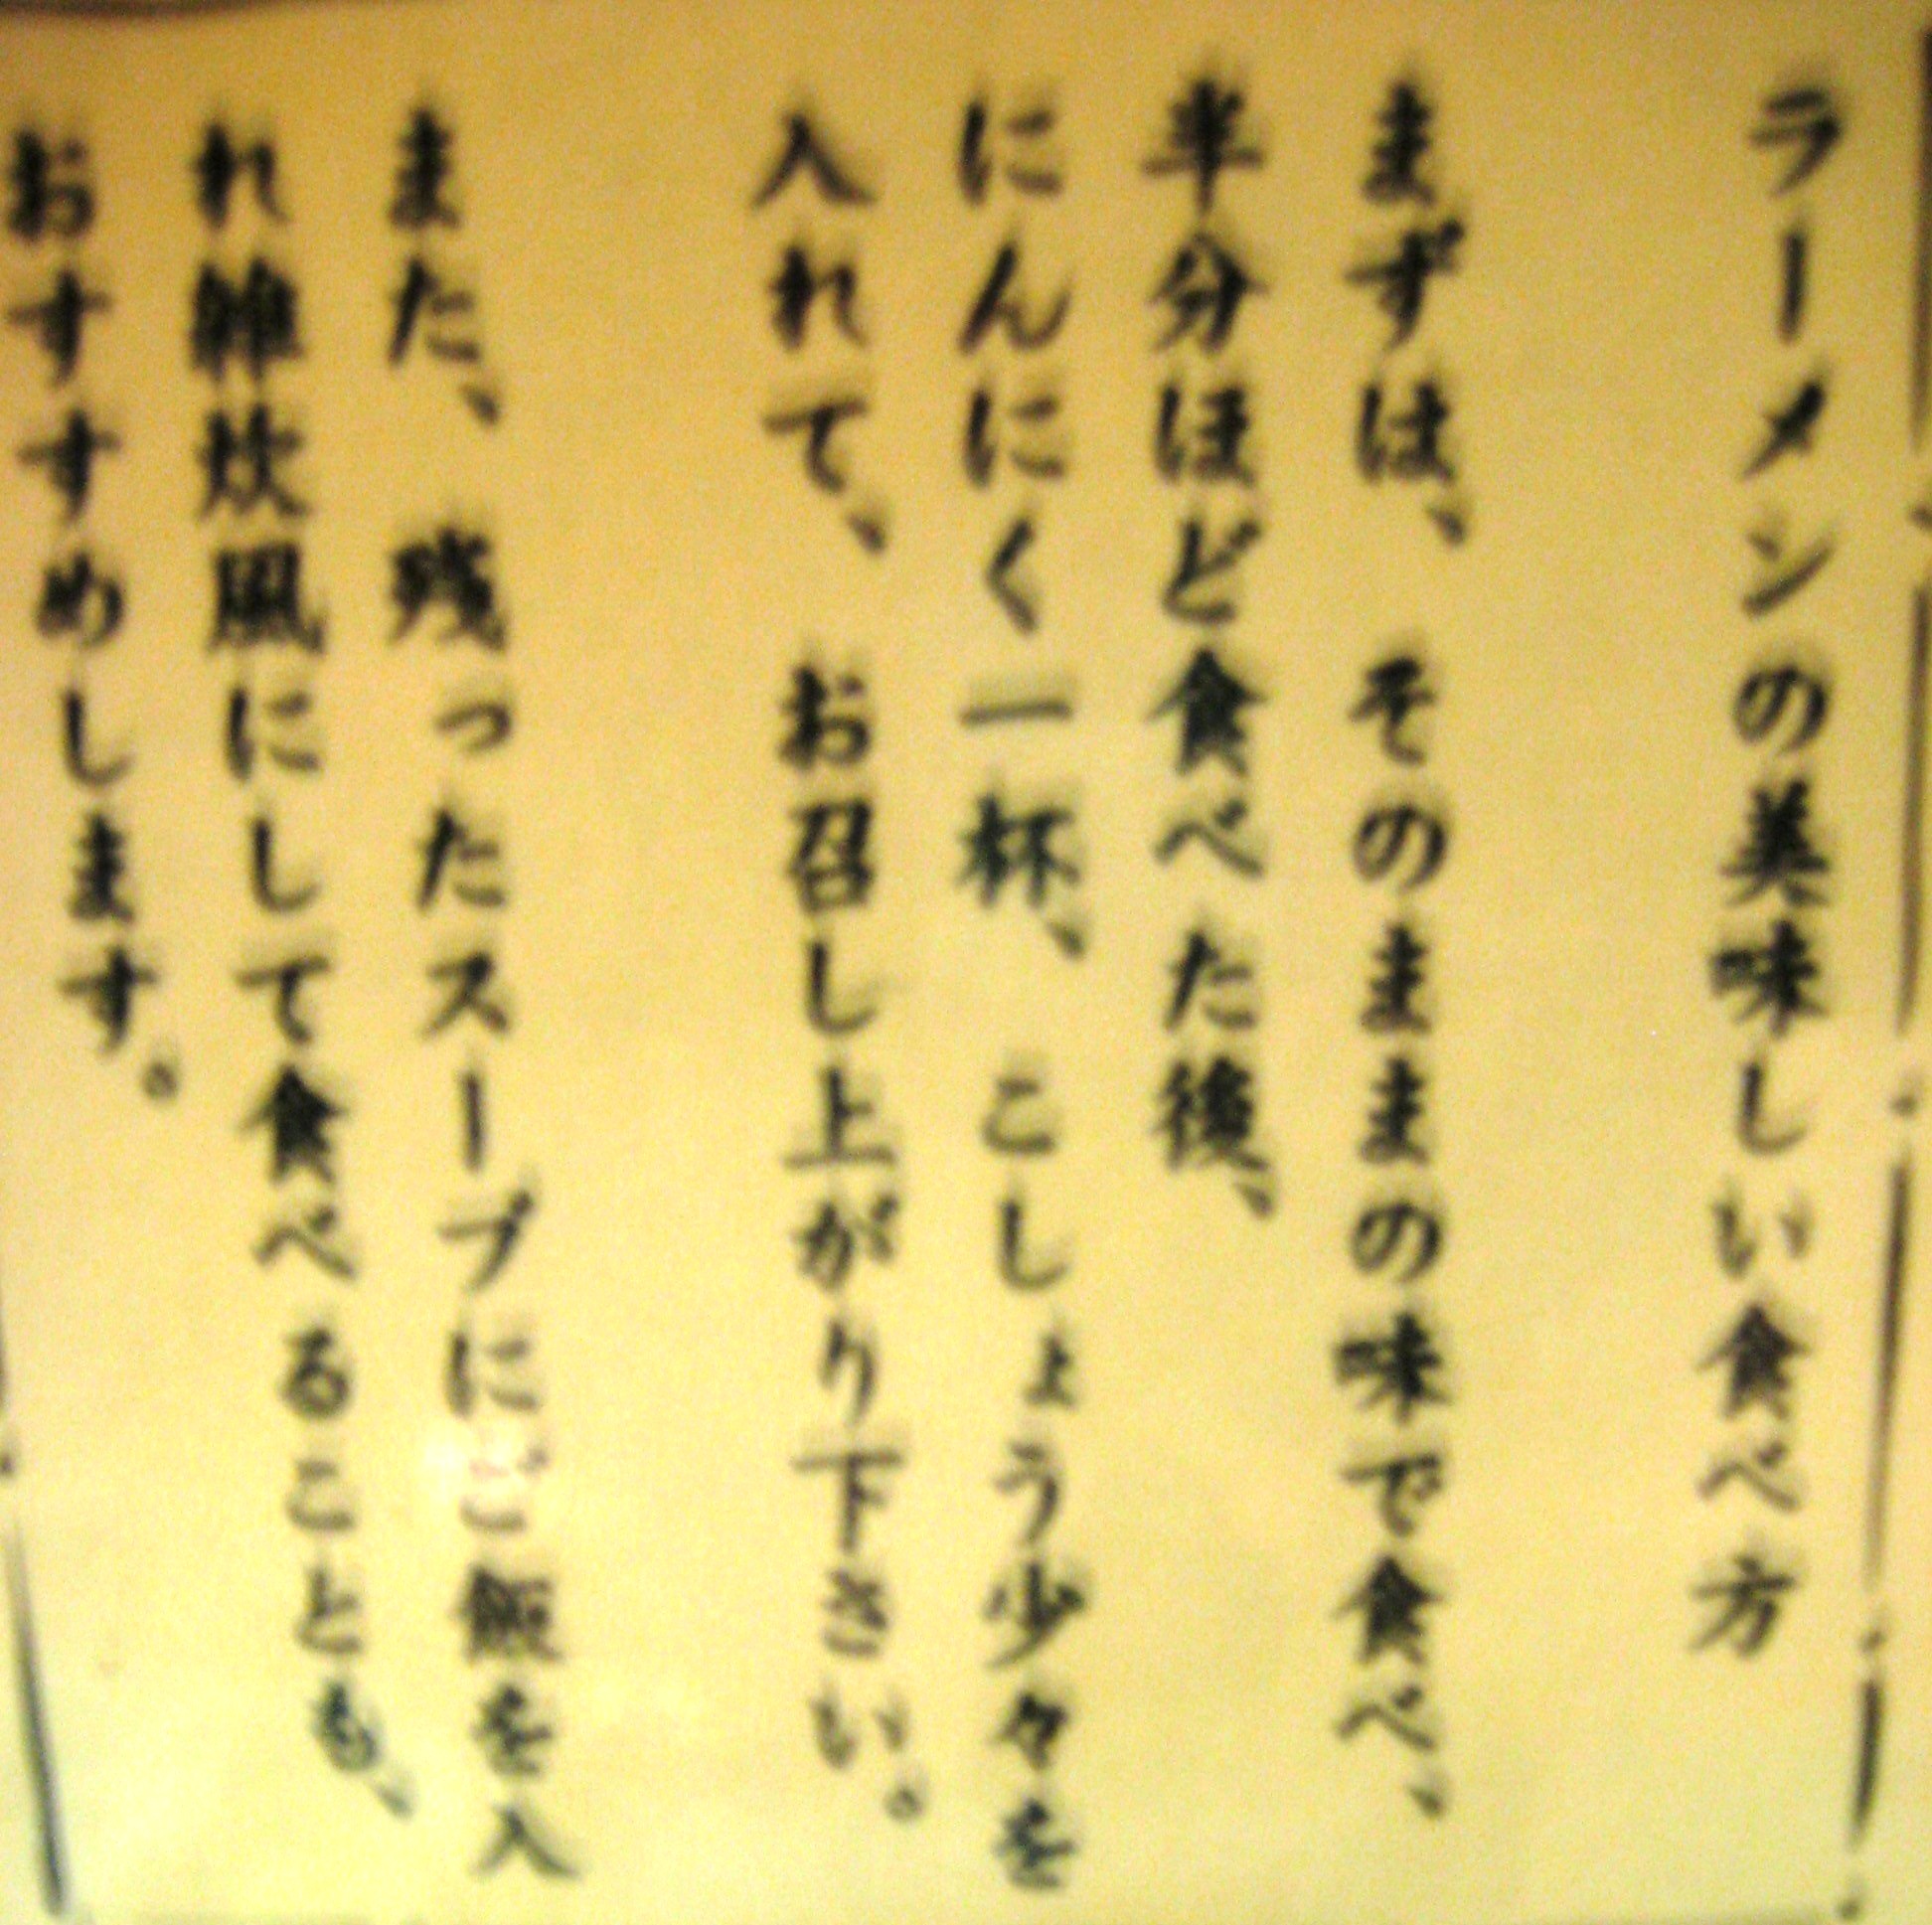 ラーメンの美味しい食べ方
まずは、そのままの味で食べ、
半分ほど食べた後、
にんにく一杯、こしょう少々を
入れて、お召し上がり下さい。
また、残ったスープにご飯を入
れ雑炊風にして食べることも、
おすすめします。